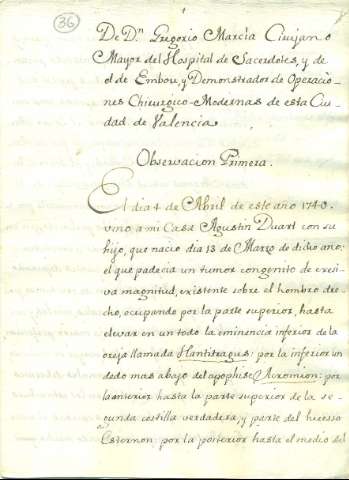 36
De Dn. Gregorio Marcìa Cirujano
Mayor del Hospital de Sacerdotes, y de
el de Embou, y Demonstrador de Operacio-
nes Chirurgico-Modernas de esta Ciu-
dad de Valencia.
Observacion Primera.
El dia 4 de Abril de este año 1740.
vino a mi Casa Agustin Duart con su
hijo, que nacio dia 13 de Marzo de dicho año:
el que padecia un tumor congenito de exesi-
va magnitud, existente sobre el hombro dre-
cho, ocupando por la parte superior, hasta
elevar en un todo la eminencia inferior de la
oreja llamada Hantitragus: por la inferior un
dedo mas abajo del apophise Acromion: por
la anterior hasta la parte superior de la se-
gunda costilla verdadera, y parte del huesso
Esternon: por la posterior hasta el medio del